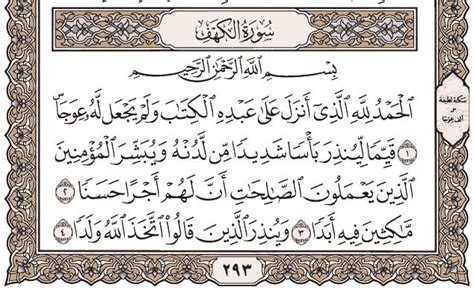 سُورَةُ الْكَهْفِ
بِسْمِ اللَّهِ الرَّحْمَٰنِ الرَّحِيمِ
الْحَمْدُ لِلَّهِ الَّذِي أَنزَلَ عَلَىٰ عَبْدِهِ الْكِتَابَ وَلَمْ يَجْعَل لَّهُ عِوَجًا ۜ
١ قَيِّمًا لِّيُنذِرَ بَأْسًا شَدِيدًا مِّن لَّدُنْهُ وَيُبَشِّرَ الْمُؤْمِنِينَ
الَّذِينَ يَعْمَلُونَ الصَّالِحَاتِ أَنَّ لَهُمْ أَجْرًا حَسَنًا ٢
مَّاكِثِينَ فِيهِ أَبَدًا ٣ وَيُنذِرَ الَّذِينَ قَالُوا اتَّخَذَ اللَّهُ وَلَدًا ٤
سكتة لطيفة
على
ألف عوجا
٢٩٣